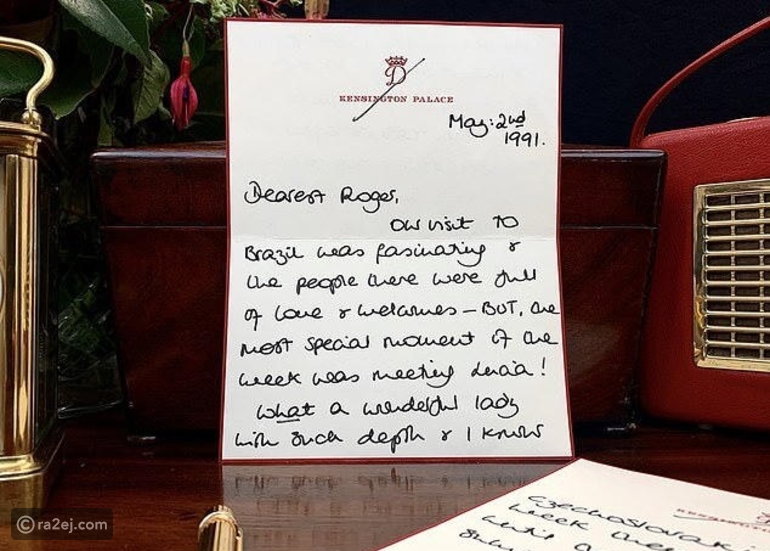 D
KENSINGTON PALACE
May: 2nd
1991.
Dearest Roger,
Our visit to
Brazil was fascinating &
the people there were full
of love & welcomes – BUT, the
most special moment of the
week was meeting Lucia!
What a wonderful lady
with such depth & I know
Czechoslovaki
week
until a
©ra2ej.com